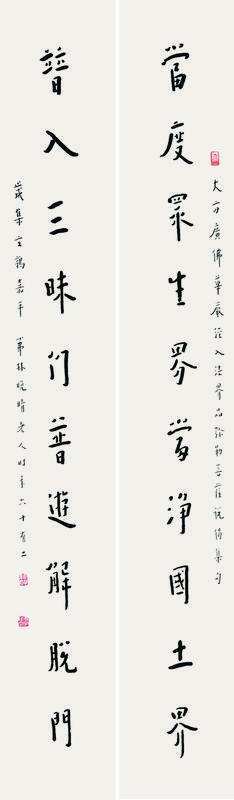 當度眾生界當淨國土界
大方廣佛華嚴經入法界品彌勒菩薩說偈集句
普入三昧門普遊解脫門
歲集玄鶉嘉平 茀林晚晴老人時年六十有二